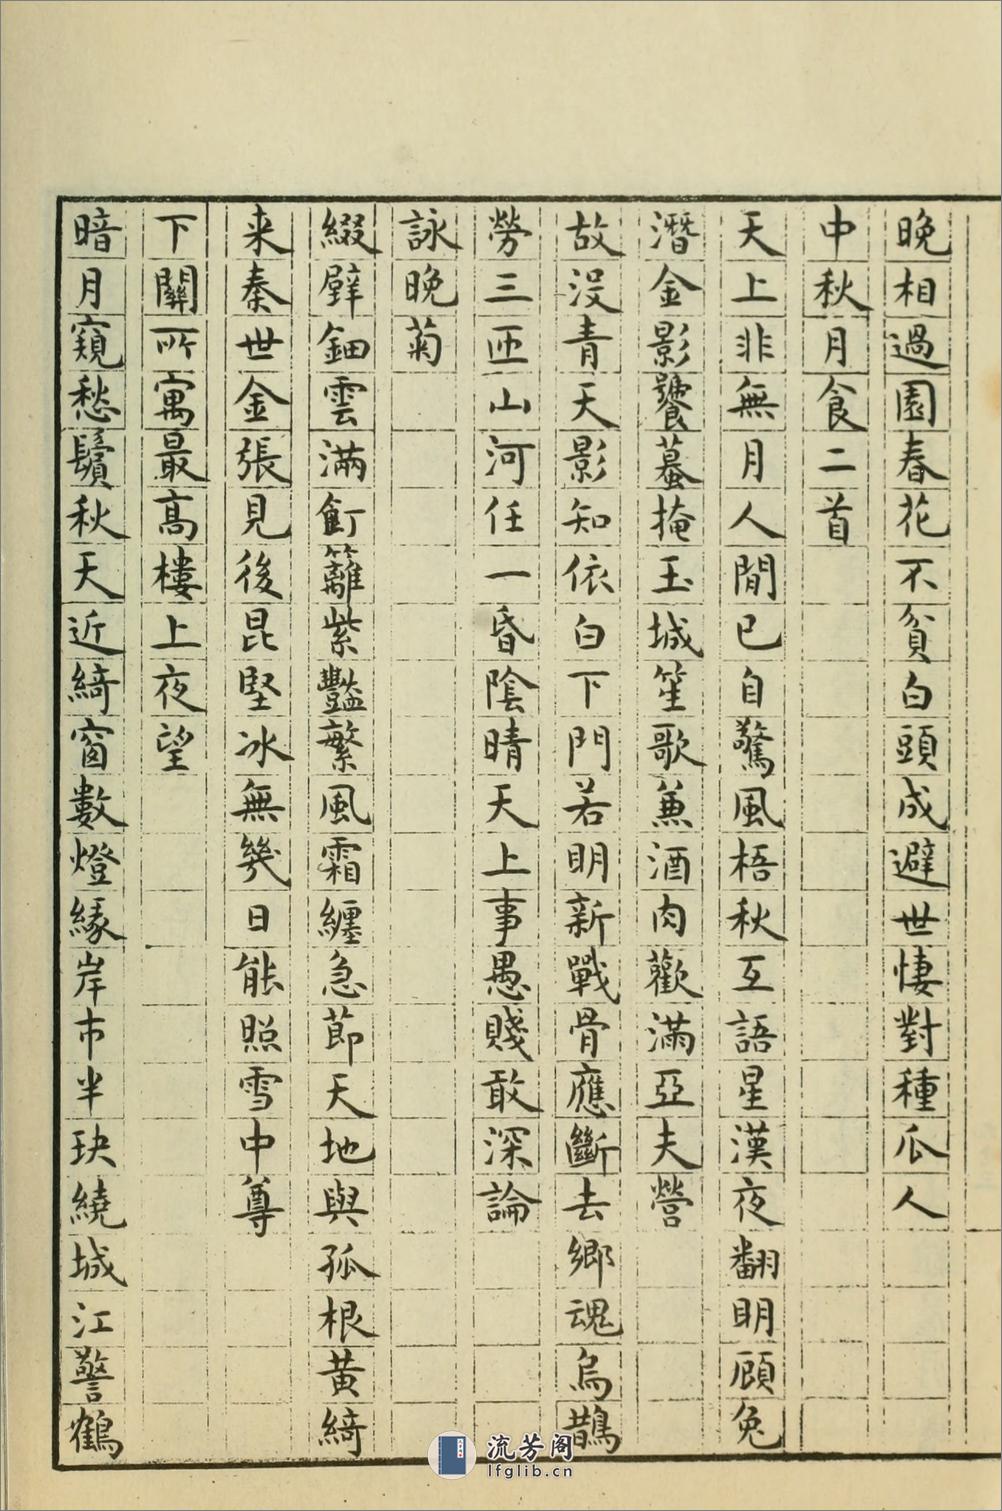 晚相過園春花不貧白頭成避世悽對種瓜人
中秋月食二首
天上非無月人閒已自驚風梧秋互語星漢夜翻明顧兔
潛金影饕蟇掩玉城笙歌兼酒肉歡滿亞夫營
故没青天影知依白下門若明新戰骨應斷去鄉魂烏鵲
勞三匝山河任一昏陰晴天上事愚賤敢深論
詠晚菊
綴壁鈿雲滿飣籬紫豔繁風霜纏急節天地與孤根黃綺
来秦世金張見後昆堅冰無幾日能照雪中尊
下關所寓最高樓上夜望
暗月窺愁鬢秋天近綺窗數燈緣岸市半玦繞城江警鶴
流芳阁
lfglib.cn